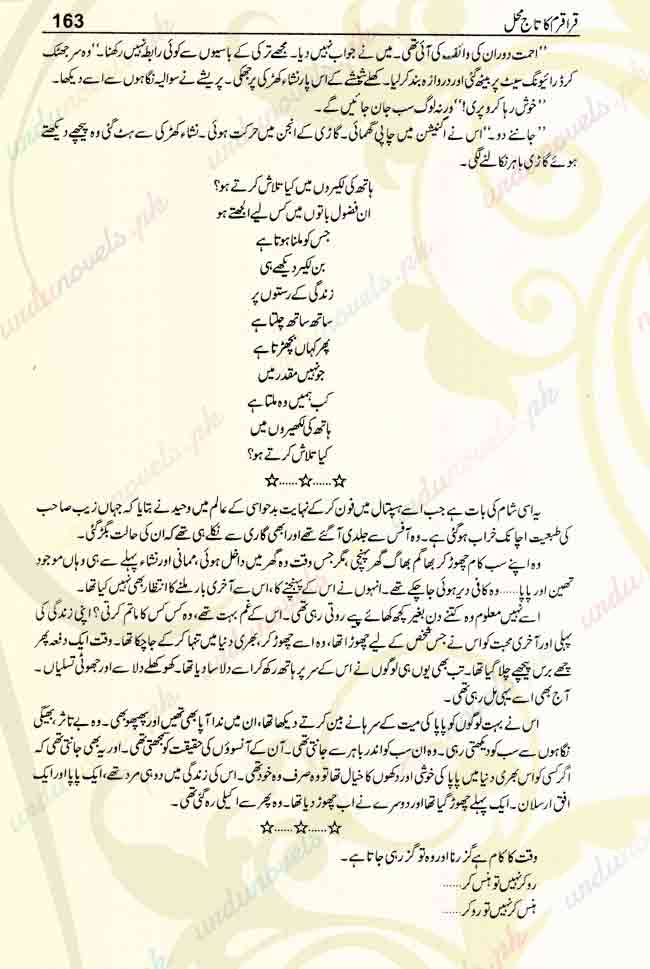 163 قراقرم کا تاج محل
"احمت دوران کی وائف کی آئی تھی۔ میں نے جواب نہیں دیا۔ مجھے ترکی کے باسیوں سے کوئی رابطہ نہیں رکھنا۔" وہ سر جھٹک
کر ڈرائیونگ سیٹ پر بیٹھ گئی اور دروازہ بند کر لیا۔ کھلے شیشے کے اس پار نشاء کھڑکی پر جھکی۔ پریشے نے سوالیہ نگاہوں سے اسے دیکھا۔
"خوش رہا کرو پری! ورنہ لوگ سب جان جائیں گے۔
"جاننے دو۔" اس نے اگنیشن میں چابی گھمائی۔ گاڑی کے انجن میں حرکت ہوئی۔ نشاء کھڑکی سے ہٹ گئی وہ پیچھے دیکھتے
ہوئے گاڑی باہر نکالنے لگی۔
ہاتھ کی لکیروں میں کیا تلاش کرتے ہو؟
ان فضول باتوں میں کس لیے الجھتے ہو
جس کو ملنا ہوتا ہے
بن لکیر دیکھے ہی
زندگی کے رستوں پر
ساتھ ساتھ چلتا ہے
پھر کہاں بچھڑتا ہے
جو نہیں مقدر میں
کب ہمیں وہ ملتا ہے
ہاتھ کی لکھیروں میں
کیا تلاش کرتے ہو؟
☆......☆......☆
یہ اسی شام کی بات ہے جب اسے ہسپتال میں فون کر کے نہایت بدحواسی کے عالم میں وحید نے بتایا کہ جہاں زیب صاحب
کی طبعیت اچانک خراب ہو گئی ہے۔ وہ آفس سے جلدی آ گئے تھے اور ابھی گاری سے نکلے ہی تھے کہ ان کی حالت بگڑ گئی۔
وہ اپنے سب کام چھوڑ کر بھاگم بھاگ گھر پہنچی، مگر جس وقت وہ گھر میں داخل ہوئی، ممانی اور نشاء پہلے سے ہی وہاں موجود
تھین اور پاپا...... وہ کافی دیر ہوئی جا چکے تھے۔ انہوں نے اس کے پہنچنے کا، اس سے آخری بار ملنے کا انتظار بھی نہیں کیا تھا۔
اسے نہیں معلوم وہ کتنے دن بغیر کچھ کھائے پیے روتی رہی تھی۔ اس کے غم بہت تھے، وہ کس کس کا ماتم کرتی؟ اپنی زندگی کی
پہلی اور آخری محبت کو اس نے جس شخص کے لیے چھوڑا تھا، وہ اسے چھوڑ کر، بھری دنیا میں تنہا کر کے جا چکا تھا۔ وقت ایک دفعہ پھر
چھے برس پیچھے چلا گیا تھا۔ تب بھی یوں ہی لوگوں نے اس کے سر پر ہاتھ رکھ کر اسے دلاسا دیا تھا۔ کھوکھلے دلاسے اور جھوٹی تسلیاں۔
آج بھی اسے یہی مل رہی تھی۔
اس نے بہت لوگوں کو پاپا کی میت کے سرہانے بین کرتے دیکھا تھا، ان میں ندا آپا بھی تھیں اور پھپھو بھی۔ وہ بے تاثر بھیگی
نگاہوں سے سب کو دیکھتی رہی۔ وہ ان سب کو اندر باہر سے جانتی تھی۔ آن کے آنسوؤں کی حقیقت کو سمجھتی تھی۔ اور یہ بھی جانتی تھی کہ
اگر کسی کو اس بھری دنیا میں پاپا کی خوشی اور دکھوں کا خیال تھا تو وہ صرف وہ خود تھی۔ اس کی زندگی میں دو ہی مرد تھے، ایک پاپا اور ایک
افق ارسلان۔ ایک پہلے چھوڑ گیا تھا اور دوسرے نے اب چھوڑ دیا تھا۔ وہ پھر سے اکیلی رہ گئی تھی۔
☆......☆......☆
وقت کا کام ہے گزرنا اور وہ تو گزر ہی جاتا ہے۔
رو کر نہیں تو ہنس کر......
ہنس کر نہیں تو رو کر......